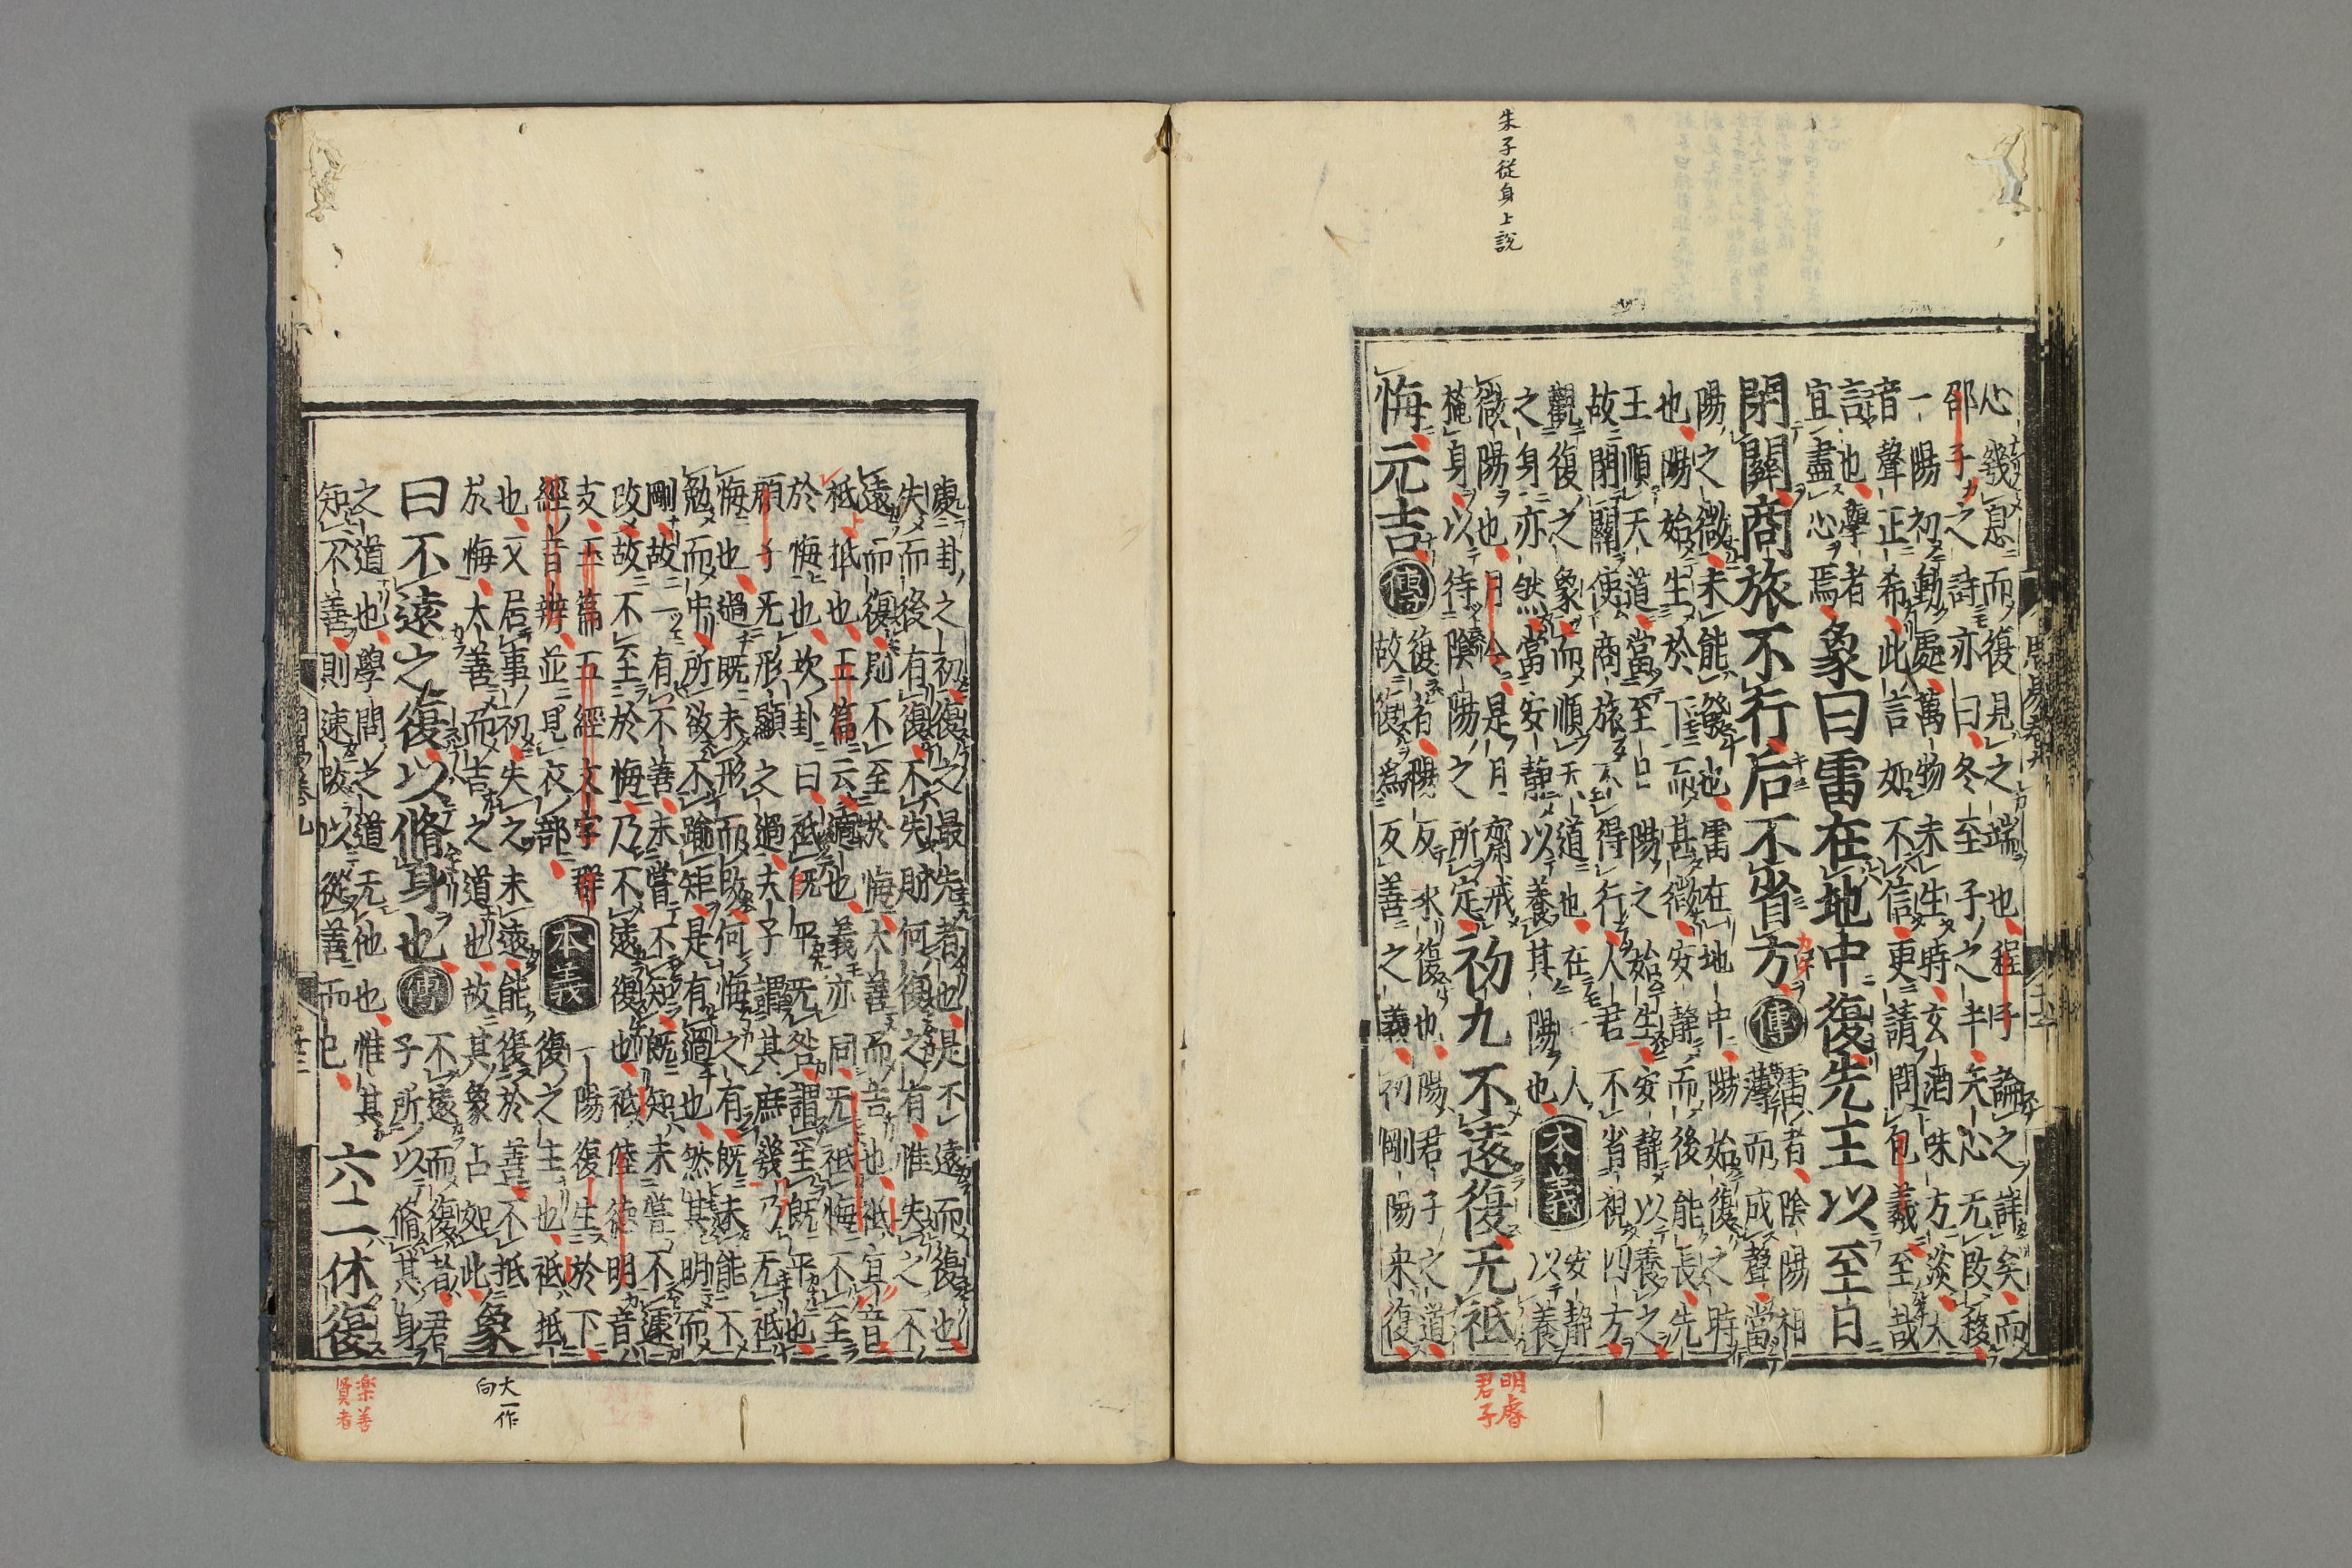 朱子從身上說
心幾息而復見之端也程子論之詳矣而
邵子之詩亦曰冬至子之半天心无改移
一陽初動處萬物未生時玄酒味方淡大
音聲正希此言如不信更請問包羲至哉
言也學者
宜盡心焉
象曰雷在地中復先王以至日
閉關商旅不行后不省方
傳
雷者陰陽相
薄而成聲當
陽之微未能發也雷在地中陽始復之時
也陽始生於下而甚微安靜而後能長先
王順天道當至日陽之始生安靜以養之
故閉關使商旅不得行人君不省視四方
觀復之象而順天道也在人
之身亦然當安靜以養其陽也
本義
安靜
以養
微陽也月令是月齋戒
掩身以待陰陽之所定
初九不遠復无祗
悔元吉
傳
復者陽反來復也陽君子之道
故復爲反善之義初剛陽来復
明睿
君子
處卦之初復之最先者也是不遠而復也
失而後有復不失則何復之有惟失之不
遠而復則不至於悔大善而吉也祗宜音
柢抵也玉篇云適也義亦同无祗悔不至
於悔也坎卦曰祗旣平无咎謂至旣平也
顏子无形顯之過夫子謂其庶幾乃无祗
悔也過旣未形而改何悔之有旣未能不
勉而中所欲不踰矩是有過也然其明而
剛故一有不善未嘗不知旣知未嘗不遽
改故不至於悔乃不遠復也祗陸德明音
支玉篇五經文字群
經音辨並見衣部
本義
一陽復生於下
復之主也祗抵
也又居事初失之未遠能復於善不抵
於悔大善而吉之道也故其象占如此
象
曰不遠之復以脩身也
傳
不遠而復者君
子所以脩其身
之道也學問之道无他也惟其
知不善則速改以從善而已
六二休復
大一作
向
楽善
賢者